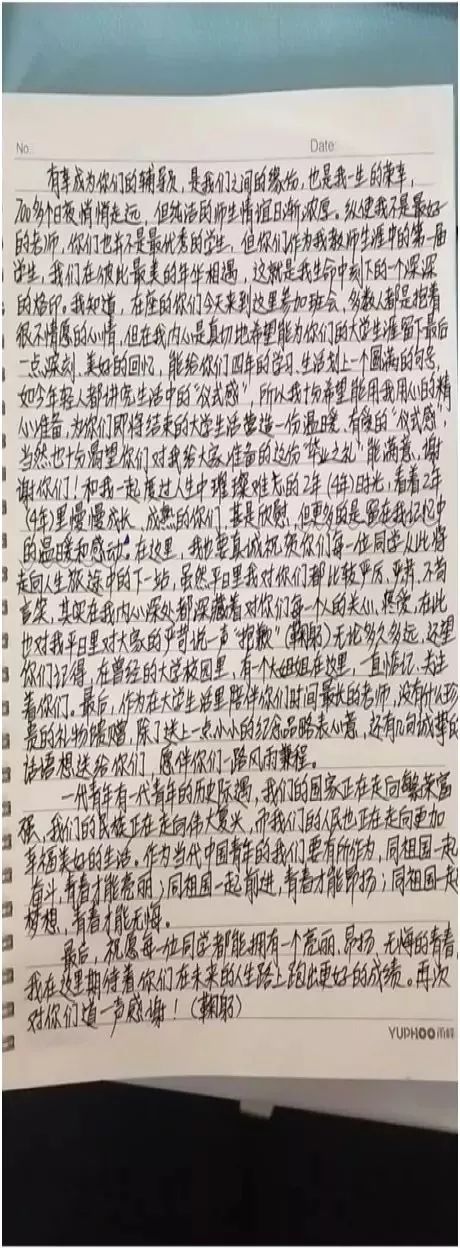 No.
Date:
有幸成为你们的辅导员，是我们之间的缘份，也是我一生的荣幸，
700多个日夜悄悄走远，但纯洁的师生情谊日渐浓厚。纵使我不是最好
的老师，你们也并不是最优秀的学生，但你们作为我教师生涯中的第一届
学生，我们在彼此最美的年华相遇，这就是我生命中刻下的一个深深
的烙印。我知道，在座的你们今天来到这里参加班会，多数人都是抱着
很不情愿的心情，但在我内心是真切地希望能为你们的大学生涯留下最后
一点深刻、美好的回忆，能给你们四年的学习、生活划上一个圆满的句号，
如今年轻人都讲究生活中的“仪式感”，所以我十分希望能用我用心的精
心准备，为你们即将结束的大学生活营造一份温暖、有爱的“仪式感”，
当然也十分渴望你们对我给大家准备的这份“毕业之礼”能满意、谢
谢你们！和我一起度过人生中璀璨难忘的2年（4年）时光，看着2年
（4年）里慢慢成长、成熟的你们，甚是欣慰，但更多的是留在我记忆中
的温暖和感动。在这里，我也要真诚祝贺你们每一位同学从此将
走向人生旅途中的下一站，虽然平日里我对你们都比较严厉、严苛、不苟
言笑，其实在我内心深处都深藏着对你们每一个人的关心、疼爱，在此
也对我平日里对大家的严苛说一声“抱歉”（鞠躬）无论多久多远，还望
你们记得，在曾经的大学校园里，有个大姐姐在这里，一直惦记、关注
着你们。最后，作为在大学生活里陪伴你们时间最长的老师，没有什么珍
贵的礼物馈赠，除了送上一点小小的纪念品略表心意，还有几句诚挚的
话语想送给你们，愿伴你们一路风雨兼程。
一代青年有一代青年的历史际遇，我们的国家正在走向繁荣富
强，我们的民族正在走向伟大复兴，而我们的人民也正在走向更加
幸福美好的生活。作为当代中国青年的我们要有所作为，同祖国一起
奋斗，青春才能亮丽；同祖国一起前进，青春才能昂扬；同祖国一起
梦想，青春才能无悔。
最后，祝愿每一位同学都能拥有一个亮丽、昂扬、无悔的青春，
我在这里期待着你们在未来的人生路上跑出更好的成绩。再次
对你们道一声感谢！（鞠躬）
YUPHOO